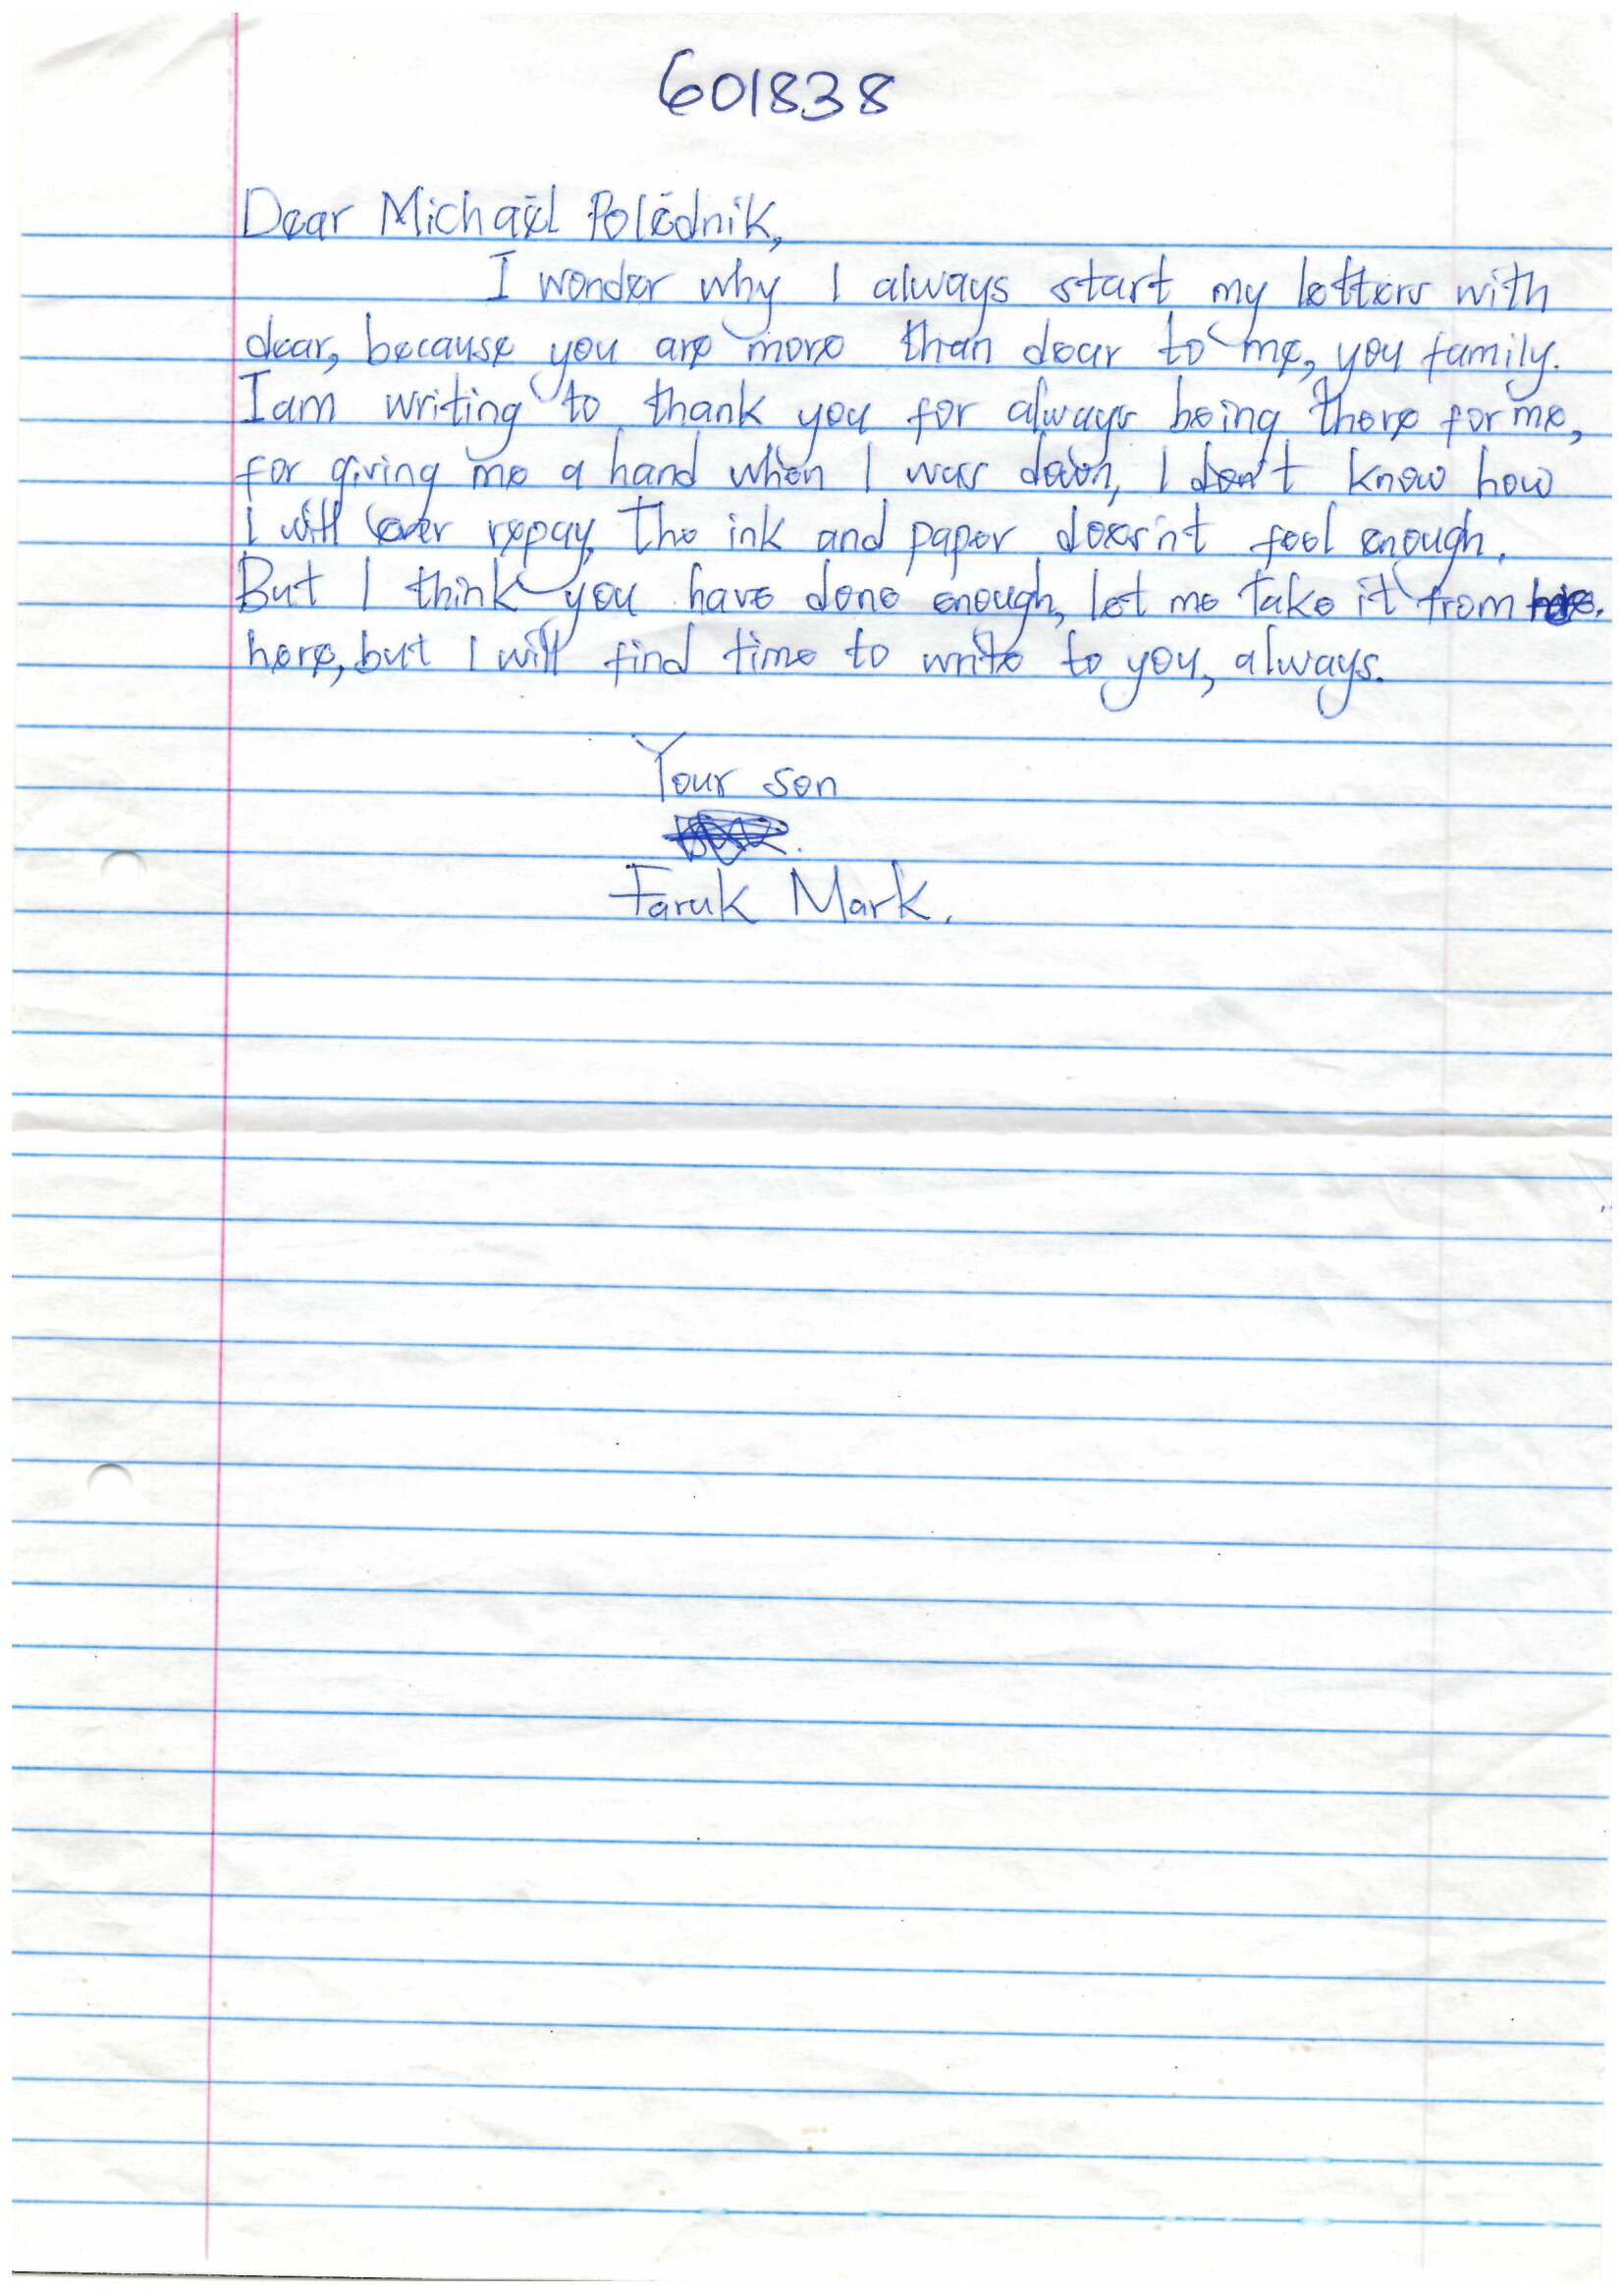 601838
Dear Michaël Polëdnik,
I wonder why I always start my letters with
dear, because you are more than dear to me, you family.
I am writing to thank you for always being there for me,
for giving me a hand when I was down, I don't know how
I will ever repay, the ink and paper doesn't feel enough.
But I think you have done enough, let me take it from
here, but I will find time to write to you, always.
Your son
Faruk Mark.